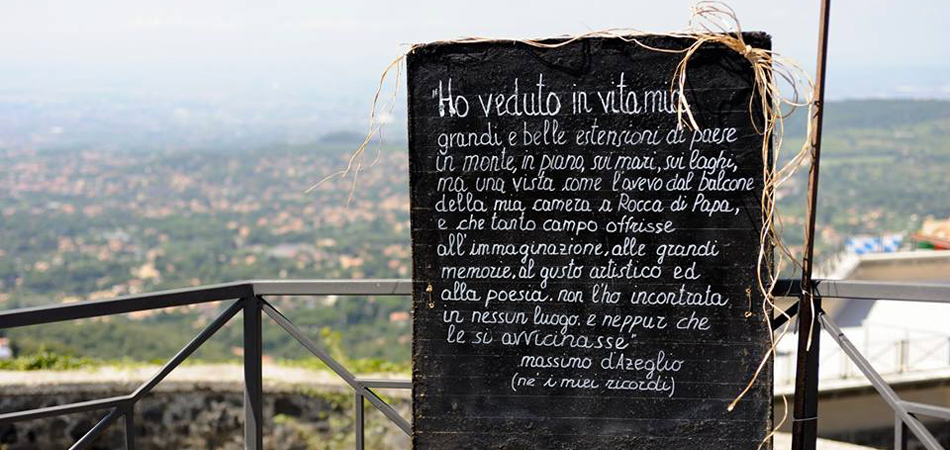 "Ho veduto in vita mia,
grandi e belle estensioni di paese
in monte, in piano, sui mari, sui laghi,
ma una vista come l'avevo dal balcone
della mia camera a Rocca di Papa,
e che tanto campo offrisse
all'immaginazione, alle grandi
memorie, al gusto artistico ed
alla poesia. non l'ho incontrata
in nessun luogo. e neppur che
le si avvicinasse"
massimo d'Azeglio
(ne' i miei ricordi)